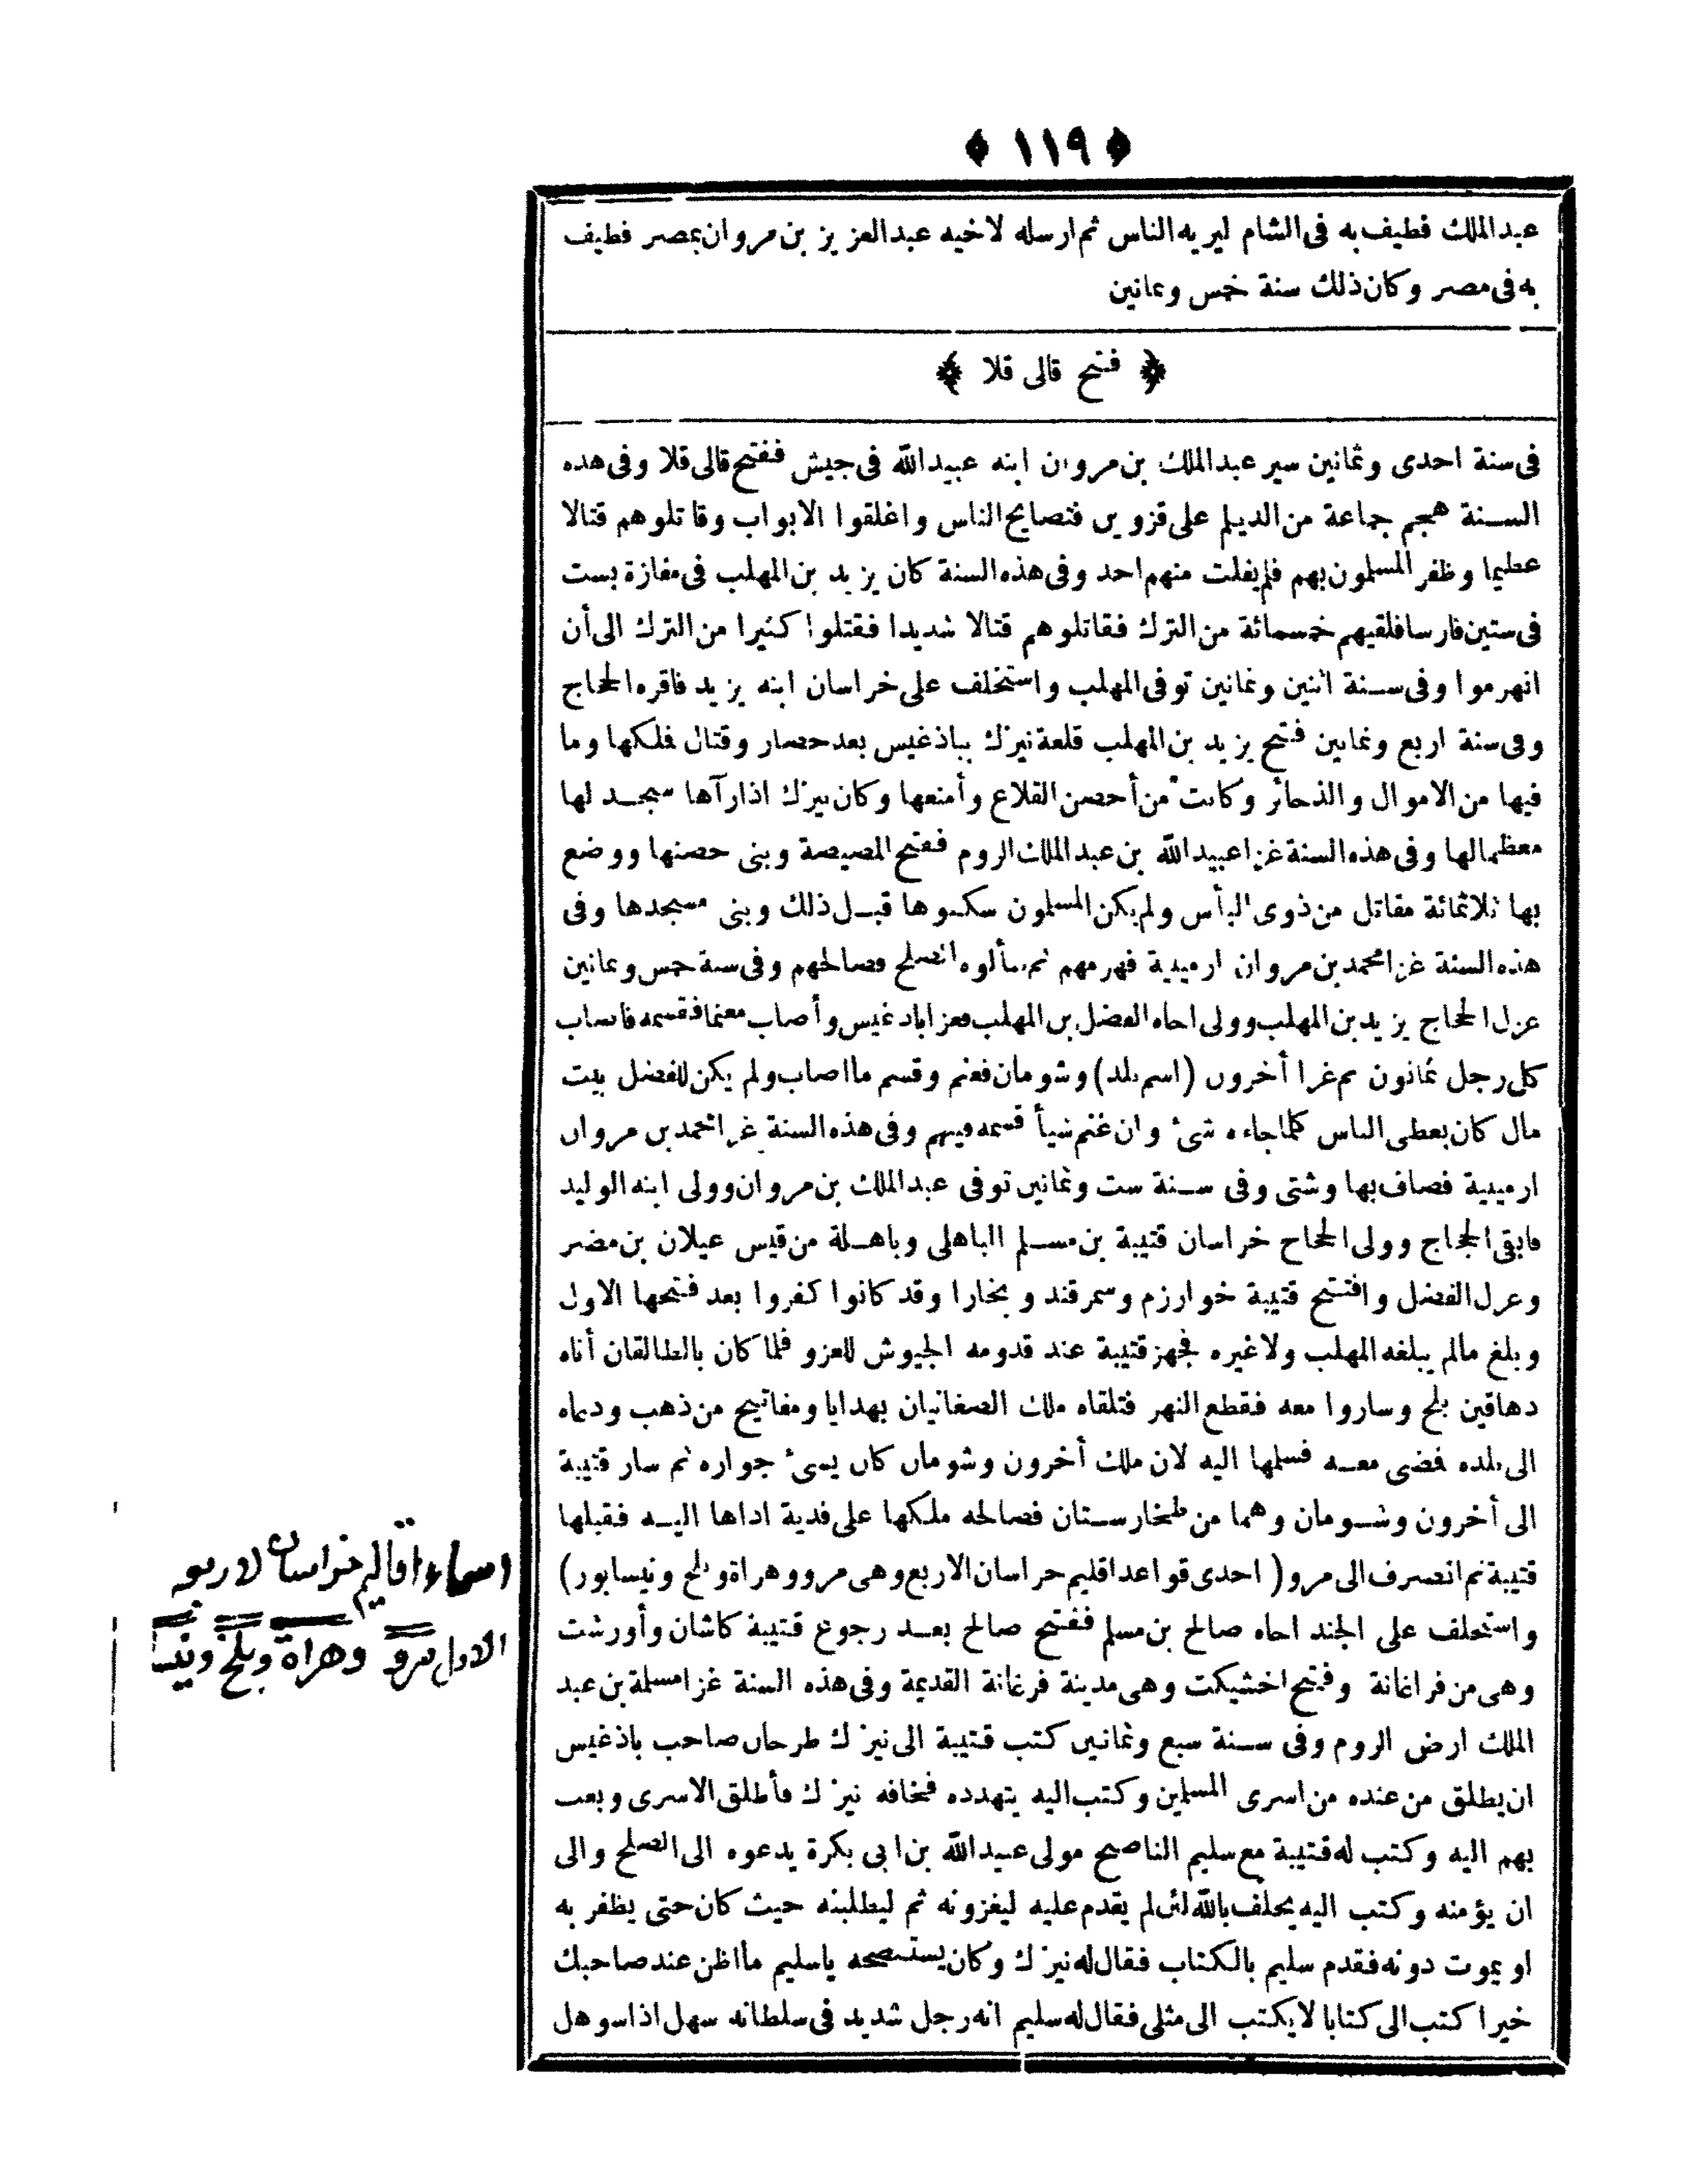 ﴿ ١١٩ ﴾
عبدالملك فطيف به فى الشام ليريه الناس ثم ارسله لاخيه عبدالعزيز بن مروان بمصر فطيف
به فى مصر وكان ذلك سنة خمس وثمانين
﴿ فتح قالى قلا ﴾
فى سنة احدى وثمانين سير عبدالملك بن مروان ابنه عبيدالله فى جيش ففتح قالى قلا وفى هذه
السنة هجم جماعة من الديلم على قزوين فتصايح الناس واغلقوا الابواب وقاتلوهم قتالا
عظيما وظفر المسلمون بهم فلم يفلت منهم احد وفى هذه السنة كان يزيد بن المهلب فى مفازة بست
فى ستين فارسا فلقيهم خمسمائة من الترك فقاتلوهم قتالا شديدا فقتلوا كثيرا من الترك الى أن
انهزموا وفى سنة اثنين وثمانين توفى المهلب واستخلف على خراسان ابنه يزيد فاقره الحجاج
وفى سنة اربع وثمانين فتح يزيد بن المهلب قلعة نيزك بباذغيس بعد حصار وقتال فملكها وما
فيها من الاموال والذخائر وكانت من أحصن القلاع وأمنعها وكان نيزك اذا رآها سجد لها
معظما لها وفى هذه السنة غزا عبيدالله بن عبدالملك الروم ففتح المصيصة وبنى حصنها ووضع
بها ثلاثمائة مقاتل من ذوى البأس ولم يكن المسلمون سكنوها قبل ذلك وبنى مسجدها وفى
هذه السنة غزا محمد بن مروان ارمينية فهزمهم ثم سألوه الصلح فصالحهم وفى سنة خمس وثمانين
عزل الحجاج يزيد بن المهلب وولى اخاه المفضل بن المهلب فغزا باذغيس وأصاب مغنما فقسمه فاصاب
كل رجل ثمانون ثم غزا أخرون (اسم بلد) وشومان فغنم وقسم ما اصاب ولم يكن للمفضل بيت
مال كان يعطى الناس كلما جاءه شئ وان غنم شيأ قسمه فيهم وفى هذه السنة غزا محمد بن مروان
ارمينية فصاف بها وشتى وفى سنة ست وثمانين توفى عبدالملك بن مروان وولى ابنه الوليد
فابقى الحجاج وولى الحجاج خراسان قتيبة بن مسلم الباهلى وباهلة من قيس عيلان بن مضر
وعزل المفضل وافتتح قتيبة خوارزم وسمرقند و بخارا وقد كانوا كفروا بعد فتحها الاول
وبلغ مالم يبلغه المهلب ولا غيره فجهز قتيبة عند قدومه الجيوش للغزو فلما كان بالطالقان أتاه
دهاقين بلخ وساروا معه فقطع النهر فتلقاه ملك الصغانيان بهدايا ومفاتيح من ذهب ودعاه
الى بلده فمضى معه فسلمها اليه لان ملك أخرون وشومان كان يسئ جواره ثم سار قتيبة
الى أخرون وشومان وهما من طخارستان فصالحه ملكها على فدية اداها اليه فقبلها
قتيبة ثم انصرف الى مرو ( احدى قواعد اقليم خراسان الاربع وهى مرو وهراة وبلخ ونيسابور)
واستخلف على الجند اخاه صالح بن مسلم ففتح صالح بعد رجوع قتيبة كاشان وأورشت
وهى من فراغانة وفتح اخشيكت وهى مدينة فرغانة القديمة وفى هذه السنة غزا مسلمة بن عبد
الملك ارض الروم وفى سنة سبع وثمانين كتب قتيبة الى نيزك طرخان صاحب باذغيس
ان يطلق من عنده من اسرى المسلمين وكتب اليه يتهدده فخافه نيزك فأطلق الاسرى وبعث
بهم اليه وكتب له قتيبة مع سليم الناصح مولى عبيدالله بن ابى بكرة يدعوه الى الصلح والى
ان يؤمنه وكتب اليه يحلف بالله لئن لم يقدم عليه ليغزونه ثم ليطلبنه حيث كان حتى يظفر به
او يموت دونه فقدم سليم بالكتاب فقال له نيزك وكان يستنصحه يا سليم ما اظن عند صاحبك
خيرا كتب الى كتابا لا يكتب الى مثلى فقال له سليم انه رجل شديد فى سلطانه سهل اذا سوهل
اسماء اقاليم خراسان الاربعه
الاول مرو وهراة وبلخ ونيسا